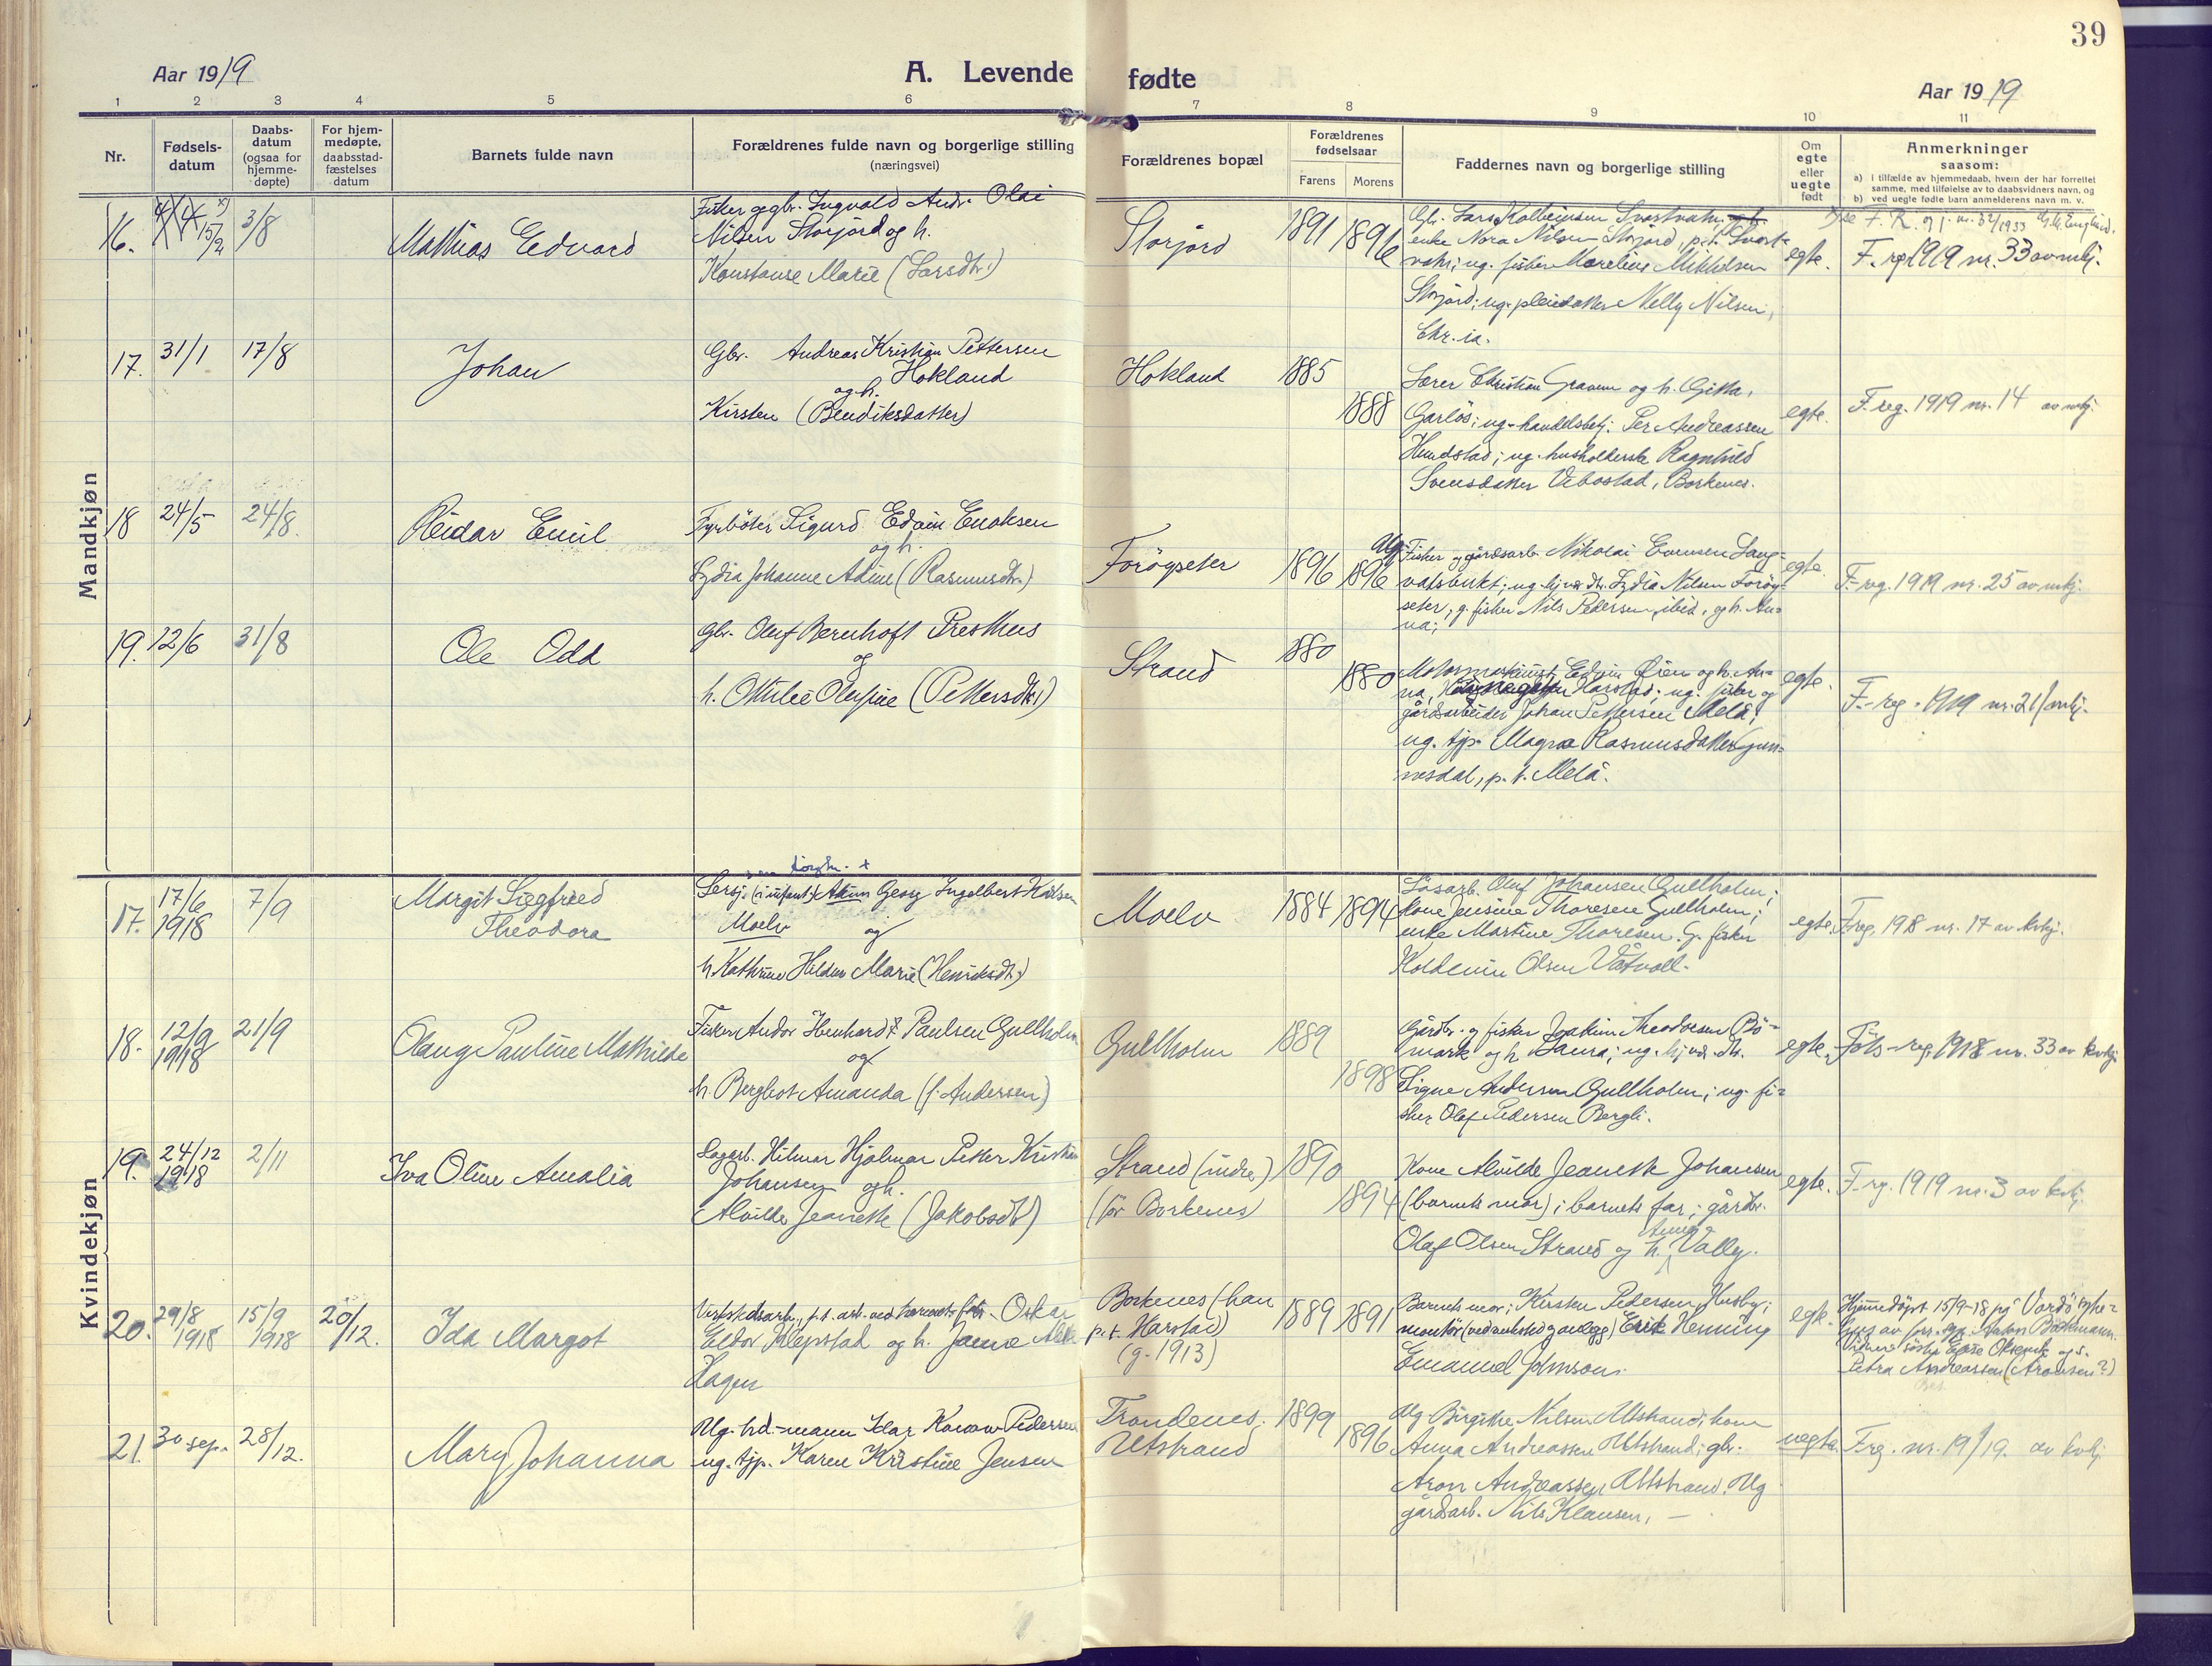 39
Aar 1919
A. Levende fødte
Aar 1919
1 2 3 4 5 6 7 8 9 10 11
Nr.
Fødselsdatum
Daabsdatum (ogsaa for hjemmedøpte)
For hjemmedøpte, daabsstadfæstelses datum
Barnets fulde navn
Forældrenes fulde navn og borgerlige stilling (næringsvei)
Forældrenes bopæl
Forældrenes fødselsaar
Farens Morens
Faddernes navn og borgerlige stilling
Om egte eller uegte født
Anmerkninger saasom:
a) I tilfælde av hjemmedaab, hvem der har forrettet samme, med tilføielse av to daabsvidners navn, og
b) ved uegte fødte barn anmelderens navn m. v.
Mandkjøn
16. 15/2 3/8
Mathias Edvard
Fisker og gbr. Ingvald Andr. Olai
Nilsen Storjord og h.
Konstanse Marie (Larsdtr.)
Storjord 1891 1896
enke Nora Nilsen, Storjord, p.t. Svart-
vatn; ug. fisker Marelius Mikkelsen
Storjord; ug. pleiedatter Nelly Nilsen,
Chr.ia.
egte.
F. reg. 1919 nr. 33 av mkj.
17. 31/1 17/8
Johan
Gbr. Andreas Kristian Pettersen
Hokland
og h.
Kirsten (Bendiksdatter)
Hokland 1885 1888
Lærer Christian Gravem og h. Gitta,
Garløs; ug. handelsbetj. Per Andreassen
Hundstad; ug. husholderske Ragnhild
Svensdatter Vebostad, Borkenes.
egte.
F. reg. 1919 nr. 14 av mkj.
18 24/5 24/8.
Reidar Emil
Fyrbøter Sigurd Edvin Enoksen
og h.
Lydia Johanne Adine (Rasmusdtr.)
Forøyseter 1896 1896
Fisker og gårdsarb. Nikolai Evensen Lang-
vatsbukt; ug. hjvr. dtr. Lydia Nilsen Forøy-
seter; g. fisker Nils Pedersen, ibid, og h. An-
na;
egte.
F. reg. 1919 nr. 25 av mkj.
19. 12/6 31/8
Ole Odd
Gbr. Oluf Bernhoft Presthus
og
h. Ottilie Olufine (Pettersdtr.)
Strand 1880 1880
Motormaskinist Edvin Øien og h. An-
na, Harstad; ug. fisker og
gårdsarbeider Johan Pettersen Melå;
ug. tjp. Magna Rasmusdatter Gun-
nesdal, p.t. Melå.
egte.
F. reg. 1919 nr. 21 / mkj.
Kvindekjøn
17. 17/6 1918 7/9
Margit Siegfried
Theodora
Sersj. (i infant.) Georg Ingelbert Karlsen
Moelv og
h. Kathrine Hilda Marie (Henriksdtr.)
Moelv 1884 1894
Løsarb. Oluf Johansen Gullholm;
kone Jensine Thoresen Gullholm;
enke Martine Thoresen. G. fisker
Koldevin Olsen Våtvoll.
egte.
F. reg. 1918 nr. 17 av kvkj.
18. 12/9 1918 21/9
Olaug Pauline Mathilde
Fisker Andor Paulsen Gullholm
og
h. Bergljot Amanda (f. Andersen)
Gullholm 1889 1898
Gårdbr. og fisker Joakim Theodorsen Bö-
mark og h. Laura; ug. hjvr. dtr.
Signe Andersen Gullholm; ug. fi-
sker Olaf Pedersen Bergli.
egte.
Føds-reg. 1918 nr. 33 av kvkj.
19. 24/12 1918 2/11
Iva Oline Amalia
Hilmar Hjalmar Petter Kristian
Johansen og h.
Alvilde Jeanette (Jakobsdtr)
Strand (indre)
(før Borkenes)
1890 1894
Kone Alvilde Jeanette Johansen
(barnets mor); barnets far; gårdbr.
Olaf Olsen Strand og h. Valley.
egte.
F. reg. 1919 nr. 3 av kvkj.
20. 29/8 1918 15/9 1918 20/12.
Ida Margot
Oskar
Eldor Klepstad og h.
Hagen
Borkenes (han
p.t. Harstad)
(g. 1913)
1889 1891
Barnets mor; Kirsten Pedersen Husby;
montør Erik Henning
Emanuel Johnson.
egte.
Hjemmedøpt 15/9-18 på Vardö syke-
Petra Andreassen (Aronsen?)
21. 30 sep. 28/12.
Mary Johanna
Ug. hd.-mann Idar Pedersen
ug. tjp. Karen Kristine Jensen
Trondenes.
Utstrand
1899 1896
Ug Birgithe Nilsen Utstrand; kone
Anna Andreassen Utstrand; gbr.
Aron Andreassen Utstrand. Ug
gårdsarb. Nils Klausen. —
uegte.
F. reg. nr. 19/19. av kvkj.